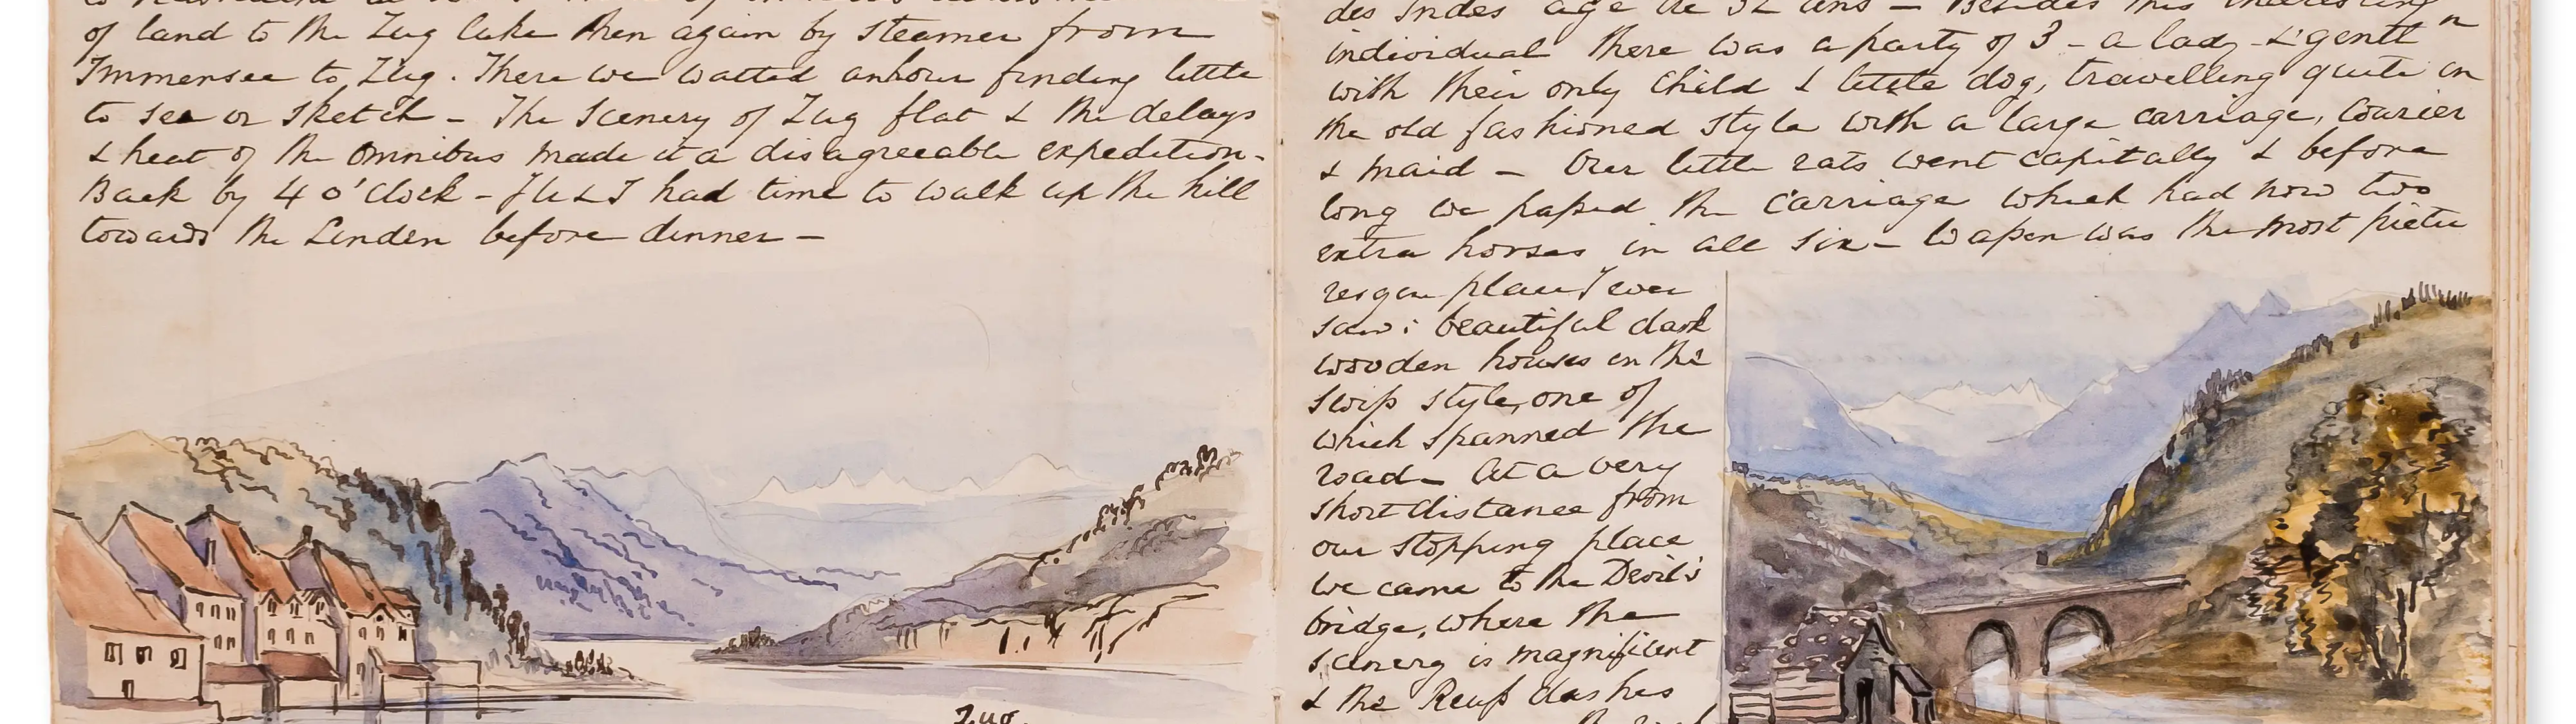 of land to the Zug lake then again by steamer from
Immensee to Zug. There we waited an hour finding little
to see or sketch - The Scenery of Zug flat & the delays
& heat of the omnibus made it a disagreeable expedition -
Back by 4 o'clock - & I had time to walk up the hill
towards the Linden before dinner -
Zug.
des Indes age de 32 ans - Besides this interesting
individual there was a party of 3 - a lady & gentn
with their only child & little dog, travelling quite in
the old fashioned style with a large carriage, courier
& maid - Our little rats went capitally & before
long we passed the carriage which had now two
extra horses in all six - Wasen was the most pictu
resque place I ever
saw: beautiful dark
wooden houses in the
Swiss style, one of
which spanned the
road - At a very
short distance from
our stopping place
we came to the Devil's
bridge, where the
scenery is magnificent
& the Reuss dashes